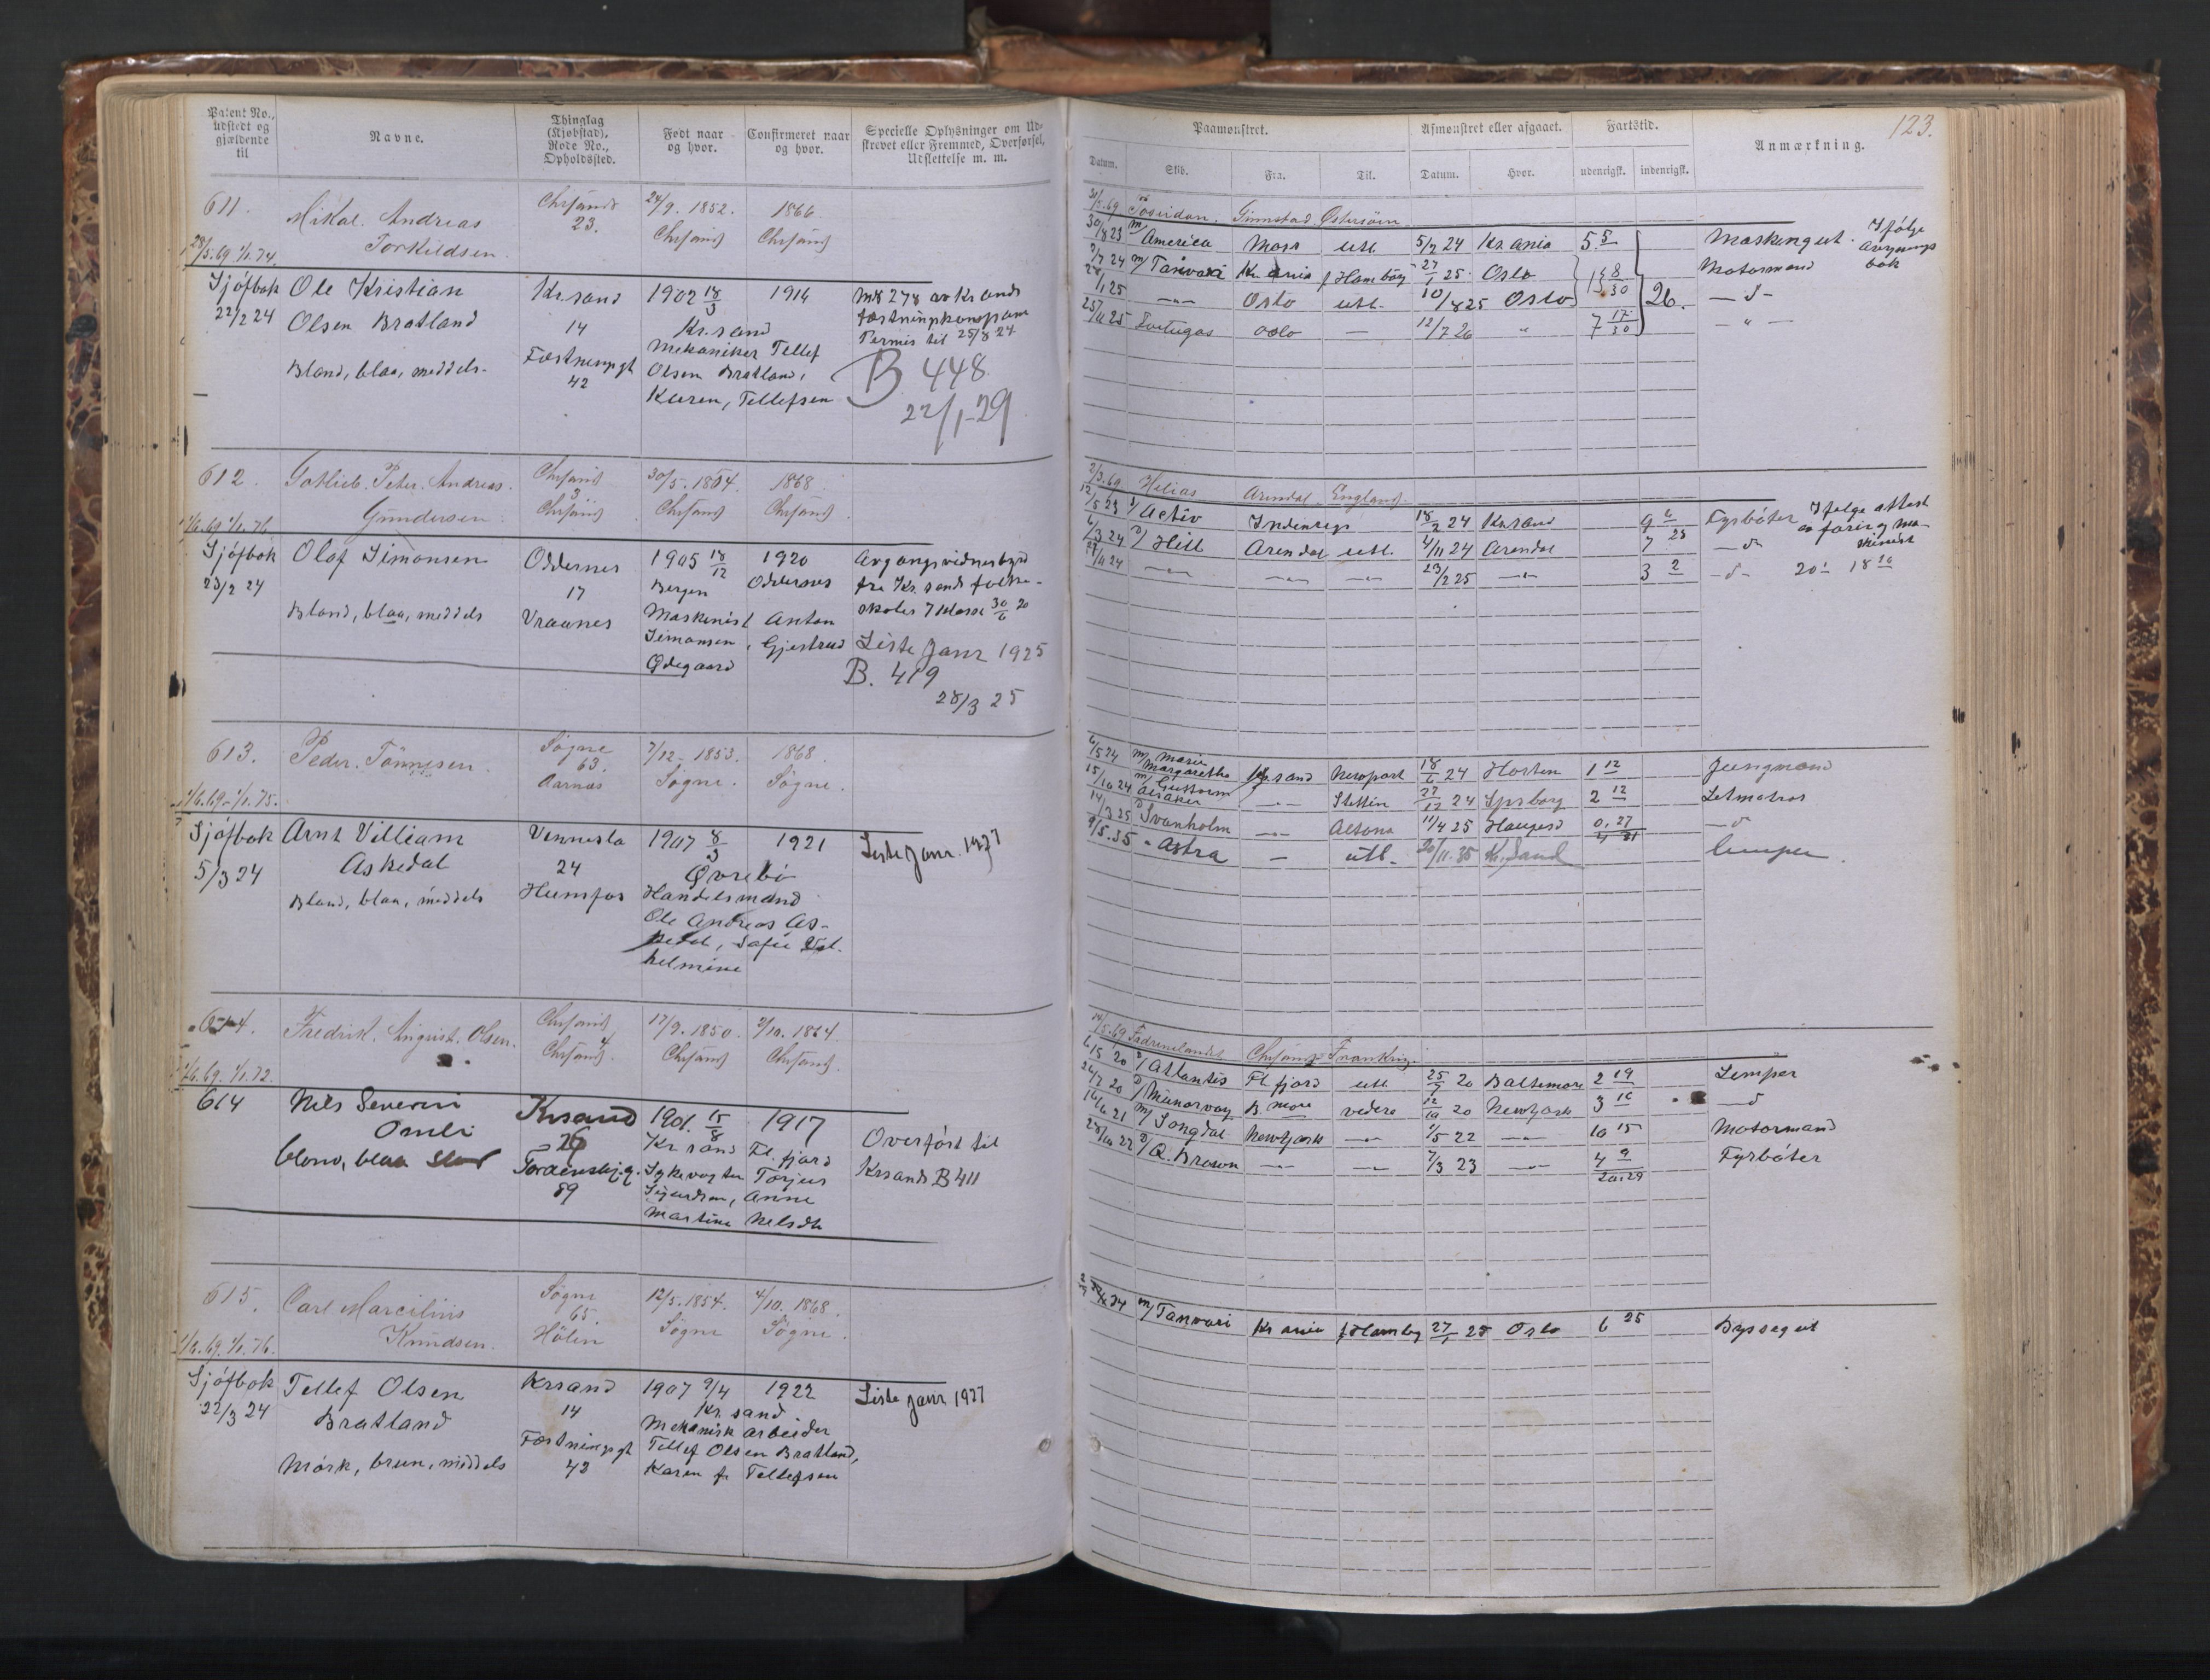 Patent No., udstedt og gjældende til
Navne.
Thinglag (Kjøbstad), Rode No., Opholdssted.
Født naar og hvor.
Confirmeret naar og hvor.
Specielle Oplysninger om Udstrevet eller Fremmed, Overførsel, Udslettelse m. m.
611.
Mikal. Andreas
Torkildsen.
Chrsand
23.
24/9. 1852.
Chrsand
1866
Chrsand
28/5.69 1/1.74.
Sjófbok
22/2 24
Ole Kristian
Olsen Bratland
Blond, blaa, meddels.
Kr.sand
14
Fæstningsgt
42
1902 18/3
1914
Kr.sand
Mekaniker Tellef
Olsen Bratland,
Karen, Tellefsen
Permis til 25/8 24
B 448
22/1-29
612.
Gotlieb. Peter. Andreas.
Gundersen
Chrsand
3
Chrsand
30/5. 1854.
Chrsand
1868
Chrsand
1/6.69 1/1.76
Sjófbok
23/2 24
Olaf Simonsen
Blond, blaa, meddels
Oddernes
17
Vraanes
1905 18/12
Bergen
1920
Oddernes
Maskinist Anton
Simonsen, Gjestrud
Ødegaard
Avgangsvidnesbyrd
fra Kr.sands folke-
skoles 7 klasse 30/6 20
Liste Janr 1925
B. 419
28/3 25
613.
Peder. Tönnesen.
Søgne
63.
Aarnæs
7/12. 1853.
Søgne.
1868.
Søgne.
1/6.69 - 1/1.75.
Sjófbok
5/3 24
Arnt Villiam
Askedal
Blond, blaa, meddels
Vennesla
24
Hunsfos
1907 8/3
1921
Øvrebö
Handelsmand
Ole Andreas As-
kedal, Sofie Vil-
helmine
Liste Janr. 1927
614.
Fredrik. August. Olsen.
Chrsand
4
Chrsand.
17/9. 1850.
Chrsand
2/10. 1864
Chrsand.
1/6.69. 1/1.72.
614
Nils Severin
Omli
blond, blaa
Krsand
26
Tordenskj.g.
89
1901. 15/8
Kr.sand
1917
Fl.fjord
Sykevogter Torjus
Sigurdsen, Anne
Martine Nelsdtr
Overført til
Krsands B 411
615.
Carl Marcilius
Knudsen.
Søgne
65.
Hölen
12/5. 1854.
Søgne
4/10. 1868.
Søgne.
1/6.69. 1/1.76.
Sjófbok
22/3 24
Tellef Olsen
Bratland
Mörk, brun, middels
Krsand
14
Fæstningsgt
42
1907 9/4
1922
Kr.sand
Mekanisk arbeider
Tellef Olsen Bratland,
Karen f. Tellefsen
Liste Janr 1927
123.
Paamønstret.
Afmønstret eller afgaaet.
Fartstid.
Anmærkning.
Datum.
Skib.
Fra.
Til.
Datum.
Hvor.
udenrigsk.
indenrigsk.
31/5.69 Poseidon. Grimstad Østersöen
30/8 23 m/ America Moss utl 5/2 24 Kr.ania 5 5 Maskingut. Ifølge
2/7 24 m/ Tanvari Kr ania f Hamburg 27/1 25 Oslo Motormand
28/1 25 Oslo utl. 10/8 25 Oslo 26.
25/11 25 Oslo — 12/7 26 " 7 17/30 — " —
2/3.69 Helias Arendal England.
12/5 23 Activ Indenrigs 18/2 24 Kr.sand 9 6 Fyrböter Ifølge attest
6/3 24 D/ Hill Arendal utl. 4/11 24 Arendal 7 28
27/11 24 23/2 25 3 2 20: 18
6/5 24 m/ Marie Margarethe Kr.sand Newport 18/6 24 Horten 1 12 Jungmand
15/10 24 m/ Guttorm Stettin 27/12 24 2 12 Letmatros
14/3 25 D Svanholm Altona 11/4 25 Haugesd 0. 27
9/5.35 " Astra — utl. 20/11. 35 Kr.Sand lemper.
14/5.69 Fædrenelandet Chrsand. Frankrig.
D/ Atlantis Fl.fjord utl 25/7 20 Baltimore 2 19 Lemper
24/7 20 D/ Munorway B.more videre 12/10 20 New York 3 16
16/6 21 m/ Songdal New York 1/5 22 10 15 Motormand
28/10 22 D/ Q. 7/3 23 4 9 Fyrböter
20.29
m/ Tanvari Kr ania f Hambg 27/1 25 Oslo 6 25 Byssegut